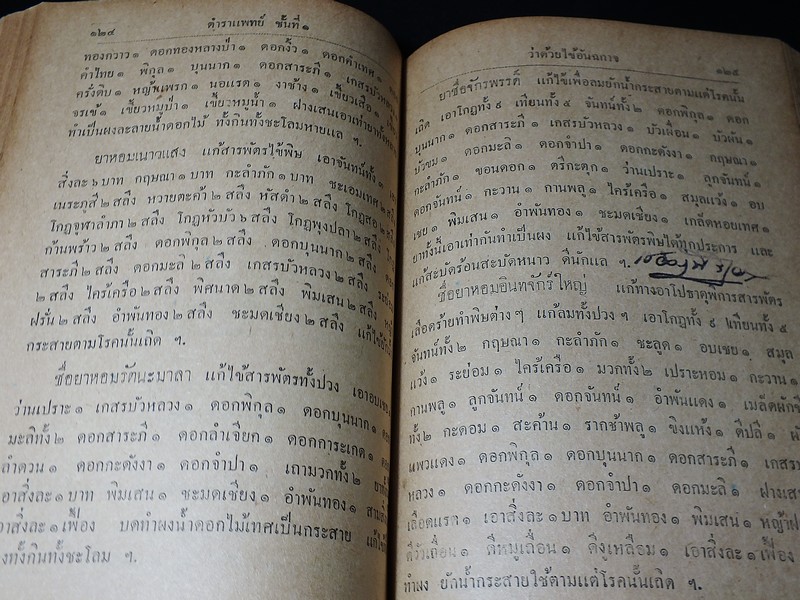 ๑๒๔
ตำราแพทย์ ชั้นที่ ๑
ทองกวาว ๑ ดอกทองหลางป่า ๑ ดอกงิ้ว ๑ ดอกคำเทศ ๑
คำไทย ๑ พิกุล ๑ บุนนาก ๑ ดอกสาระภี ๑ เกสรบัวหลวง
ครั่งดิบ ๑ หญ้าแพรก ๑ นอแรด ๑ งาช้าง ๑ เขี้ยวเสือ ๑ เขี้ยว
จรเข้ ๑ เขี้ยวหมูป่า ๑ เขี้ยะหมูน้ำ ๑ ฝางเสนเอาเท่ายาทั้ง
ทำเป็นผงละลายน้ำดอกไม้ ทั้งกินทั้งชะโลมหายแล ฯ.
ยาหอมเนาวแสง แก้สารพัตรไข้พิษ เอาจันทน์ทั้ง ๒
สิ่งละ ๖ บาท กฤษณา ๑ บาท กะลำภัก ๑ บาท ชะเอมเทศ ๒
เนระภูสี ๒ สลึง หวายตะค้า ๒ สลึง หัสดำ ๒ สลึง โกฏสอ ๒ สลึง
โกฏจุฬาลำภา ๒ สลึง โกฏหัวบัว ๖ สลึง โกฏพุงปลา ๒ สลึง
ก้านพร้าว ๒ สลึง ดอกพิกุล ๒ สลึง ดอกบุนนาก ๒ สลึง ดอก
สาระภี ๒ สลึง ดอกมะลิ ๒ สลึง เกสรบัวหลวง ๒ สลึง
๒ สลึง ไคร้เครือ ๒ สลึง พิศนาด ๒ สลึง พิมเสน ๒ สลึง
ฝรั่น ๒ สลึง อำพันทอง ๒ สลึง ชะมดเชียง ๒ สลึง แก้ไข้
กระสายตามโรคนั้นเถิด ฯ.
ชื่อยาหอมรัตนะมาลา แก้ไข้สารพัตรทั้งปวง เอาอบเชย
ว่านเปราะ ๑ เกสรบัวหลวง ๑ ดอกพิกุล ๑ ดอกบุนนาก ๑ ดอก
มะลิทั้ง ๒ ดอกสาระภี ๑ ดอกลำเจียก ๑ ดอกการะเกด ๑ ดอก
ลำดวน ๑ ดอกกะดังงา ๑ ดอกจำปา ๑ เถามวกทั้ง ๒
เอาสิ่งละ ๑ บาท พิมเสน ๑ ชะมดเชียง ๑ อำพันทอง ๑
เอาสิ่งละ ๑ เฟื้อง บดทำผงน้ำดอกไม้เทศเป็นกระสาย แก้ไข้
ทั้งกินทั้งชะโลม ฯ.
ว่าด้วยไข้อันฉกาจ
๑๒๕
ยาชื่อจักรพรรดิ์ แก้ไข้เพื่อลมยักน้ำกระสายตามแต่โรคนั้น
เถิด เอาโกฏทั้ง ๕ เทียนทั้ง ๕ จันทน์ทั้ง ๒ ดอกพิกุล ๑ ดอก
บุนนาก ๑ ดอกสาระภี ๑ เกสรบัวหลวง ๑ บัวเผื่อน ๑ บัวผัน ๑
บัวขม ๑ ดอกมะลิ ๑ ดอกจำปา ๑ ดอกกะดังงา ๑ กฤษณา ๑
กะลำภัก ๑ ขอนดอก ๑ ตรีกะตุก ๑ ว่านเปราะ ๑ ลูกจันทน์ ๑
ดอกจันทน์ ๑ กะวาน ๑ กานพลู ๑ ไคร้เครือ ๑ สมุลแว้ง ๑ อบ
เชย ๑ พิมเสน ๑ อำพันทอง ๑ ชะมดเชียง ๑ เกล็ดหอยเทศ ๑
ยาทั้งนี้เอาเท่ากันทำเป็นผง แก้ไข้สารพัตรพิษได้ทุกประการ และ
แก้สะบัดร้อนสะบัดหนาว ดีนักแล ฯ.
ชื่อยาหอมอินทจักร์ใหญ่ แก้ทางอาโปธาตุพการสารพัตร
เลือดร้ายทำพิษต่าง ๆ แก้ลมทั้งปวง ฯ เอาโกฏทั้ง ๙ เทียนทั้ง ๕
จันทน์ทั้ง ๒ กฤษณา ๑ กะลำภัก ๑ ชะลูด ๑ อบเชย ๑ สมุล
แว้ง ๑ ระย่อม ๑ ไคร้เครือ ๑ มวกทั้ง ๒ เปราะหอม ๑ กะวาน ๑
กานพลู ๑ ลูกจันทน์ ๑ ดอกจันทน์ ๑ อำพันแดง ๑ เมล็ดผักชี
ทั้ง ๒ กะดอม ๑ สะค้าน ๑ รากช้าพลู ๑ ขิงแห้ง ๑ ดีปลี ๑
แพวแดง ๑ ดอกพิกุล ๑ ดอกบุนนาก ๑ ดอกสาระภี ๑ เกสรบัว
หลวง ๑ ดอกกะดังงา ๑ ดอกจำปา ๑ ดอกมะลิ ๑ ฝางเสน ๑
เลือดแรด ๑ เอาสิ่งละ ๑ บาท อำพันทอง ๑ พิมเสน ๑ หญ้าฝรั่น
ดีวัวเถื่อน ๑ ดีหมูเถื่อน ๑ ดีงูเหลือม ๑ เอาสิ่งละ ๑ เฟื้อง
ทำผง ยักน้ำกระสายใช้ตามแต่โรคนั้นเถิด ฯ.